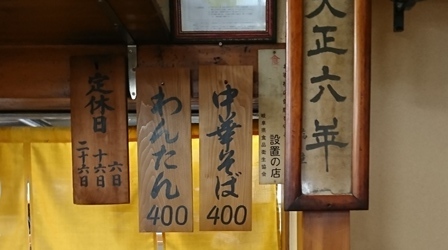 大正六年
設置の店
中華そば
400
わんたん
400
定休日
六日
十六日
二十六日